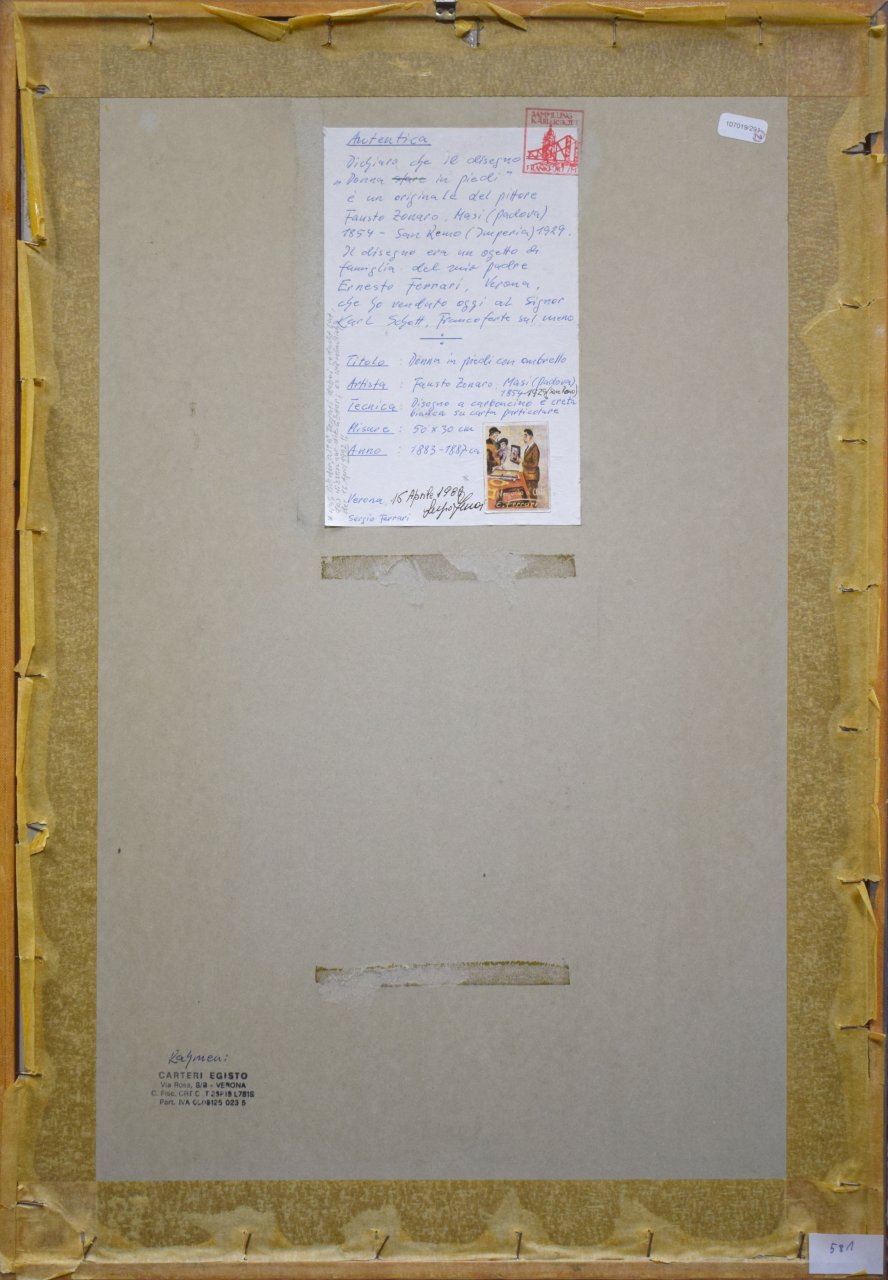 Autentica
Dichiaro che il disegno
„Donna stare in piedi"
è un originale del pittore
Fausto Zonaro, Masi (Padova)
1854 - San Remo (Imperia) 1929.
Il disegno era un ogetto di
famiglia del mio padre
Ernesto Ferrari, Verona,
che ho venduto oggi al Signor
Karl Schott, Francoforte sul meno
Titolo : Donna in piedi con ombrello
Artista : Fausto Zonaro, Masi (Padova)
1854 - 1929 (San Remo)
Tecnica : Disegno a carboncino e creta
bianca su carta particolare
Misure : 50 x 30 cm
Anno : 1883-1887 ca
Verona, 15 Aprile 1986
Sergio Ferrari
E. Ferrari
SAMMLUNG
KARL SCHOTT
FRANKFURT/M
107019/29
Rahmen:
CARTERI EGISTO
Via Rosa, 8/B - VERONA
C. Fisc.
Part. IVA
581